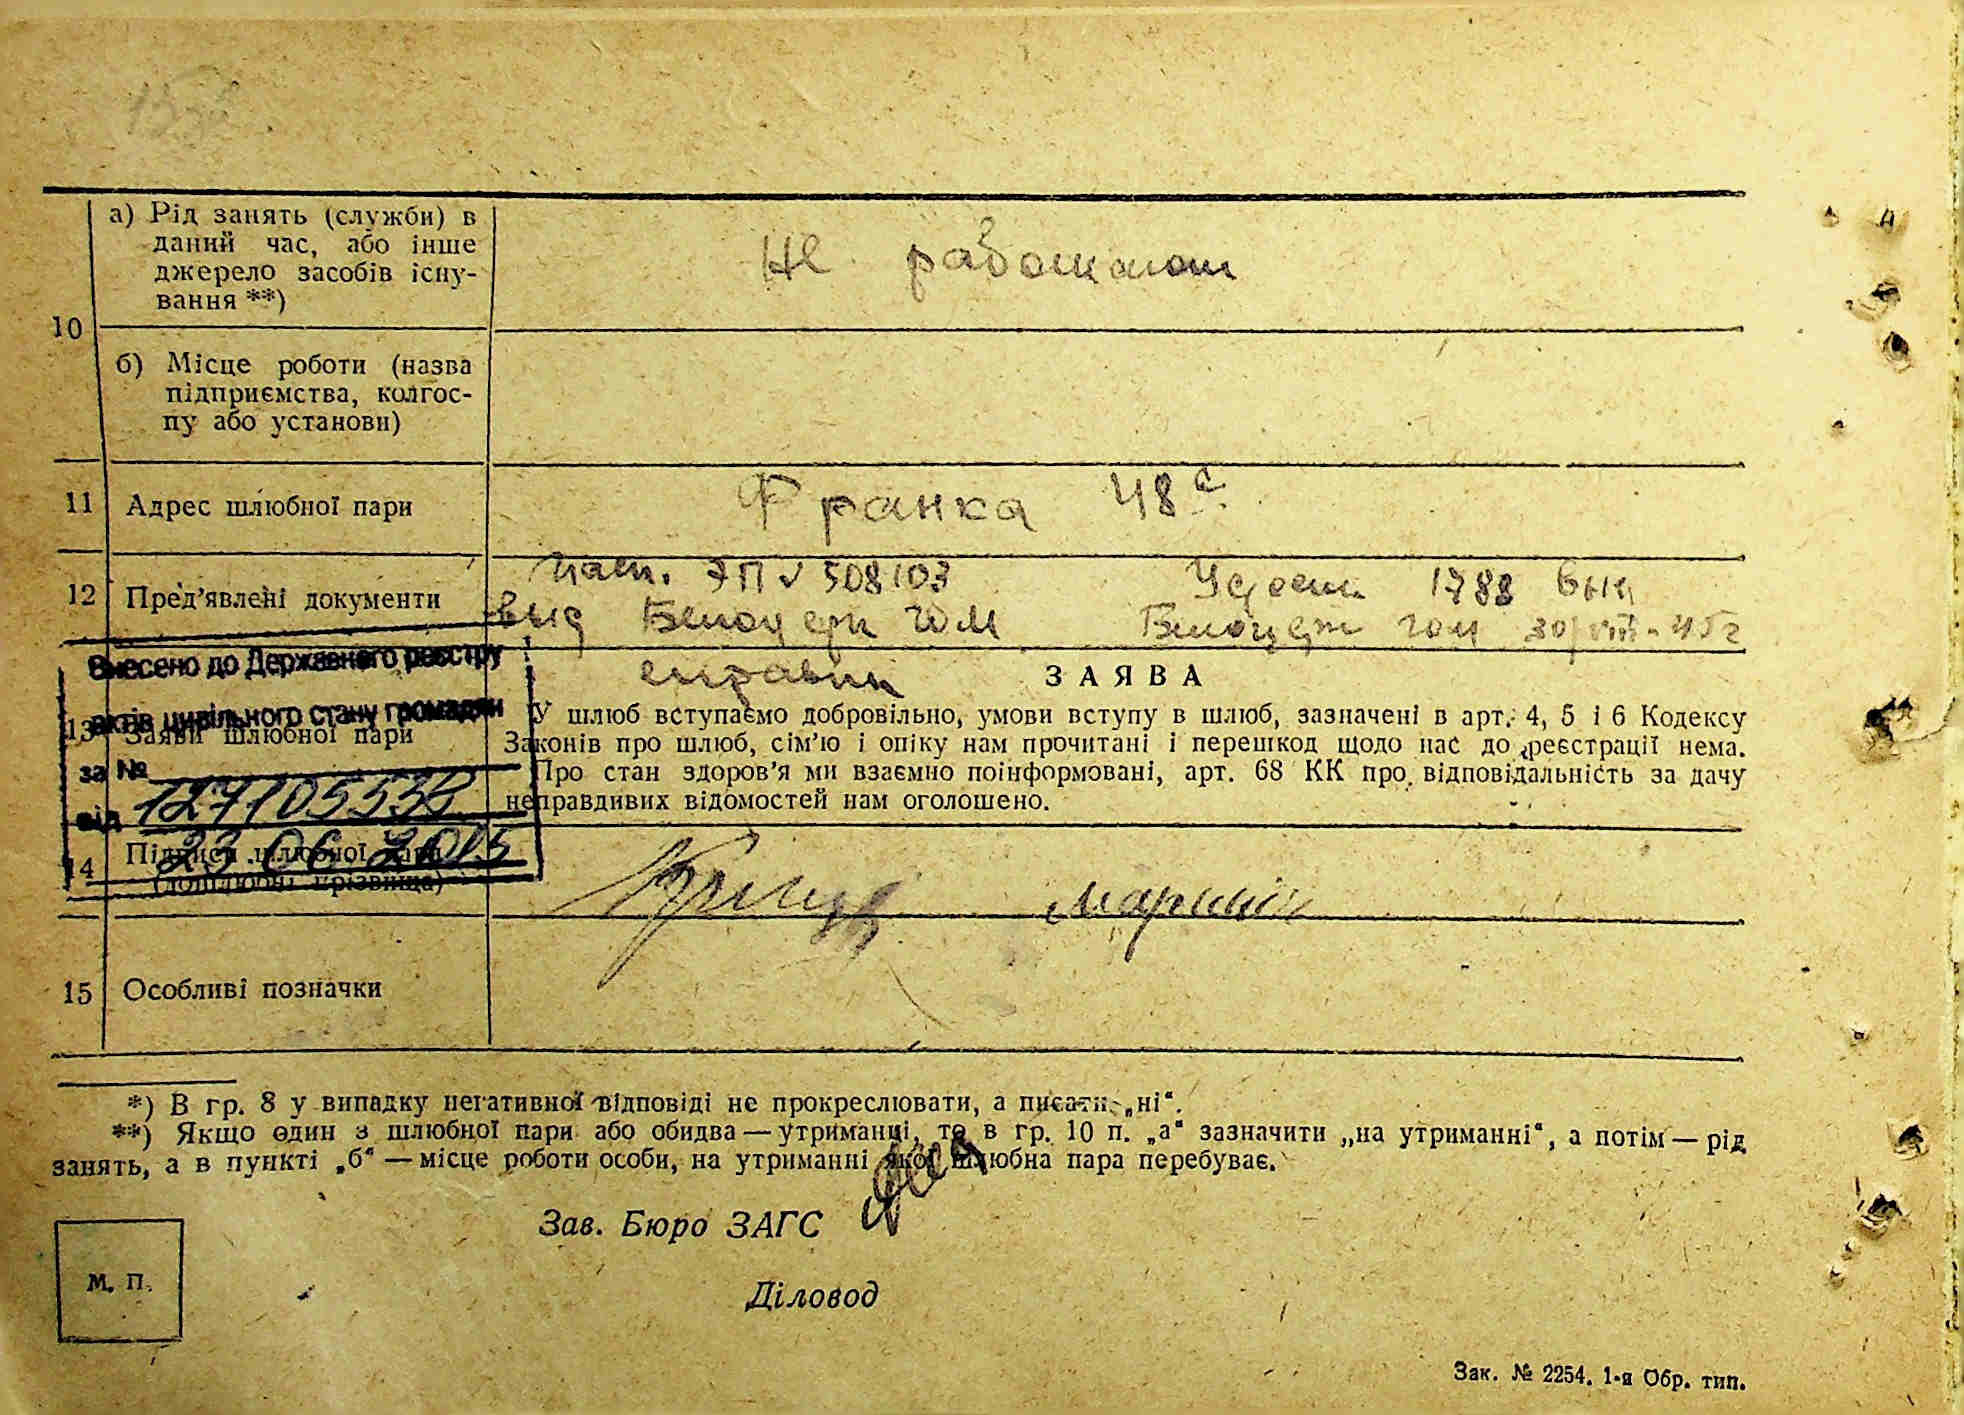 а) Рід занять (служби) в
даний час, або інше
джерело засобів існу-
вання **)
Не работают
10
б) Місце роботи (назва
підприємства, колгос-
пу або установи)
11 Адрес шлюбної пари
Франка 48 а
12 Пред'явлені документи
ЭП № 508103
выд Белоцерк ГОМ
1788 выд
Белоцерк ГОМ 30/VIII-45г
Внесено до Державного реєстру
актів цивільного стану громадян
за №
127105533
від
23.06.2015
ЗАЯВА
13 Заяви шлюбної пари
У шлюб вступаємо добровільно, умови вступу в шлюб, зазначені в арт. 4, 5 і 6 Кодексу
Законів про шлюб, сім'ю і опіку нам прочитані і перешкод щодо нас до реєстрації нема.
Про стан здоров'я ми взаємно поінформовані, арт. 68 КК про відповідальність за дачу
неправдивих відомостей нам оголошено.
14 Підписи шлюбної пари
(дошлюбні прізвища)
15 Особливі позначки
*) В гр. 8 у випадку негативної відповіді не прокреслювати, а писати „ні“.
**) Якщо один з шлюбної пари або обидва — утриманці, то в гр. 10 п. „а“ зазначити „на утриманні“, а потім — рід
занять, а в пункті „б“ — місце роботи особи, на утриманні якої шлюбна пара перебуває.
Зав. Бюро ЗАГС
М. П.
Діловод
Зак. № 2254. 1-я Обр. тип.